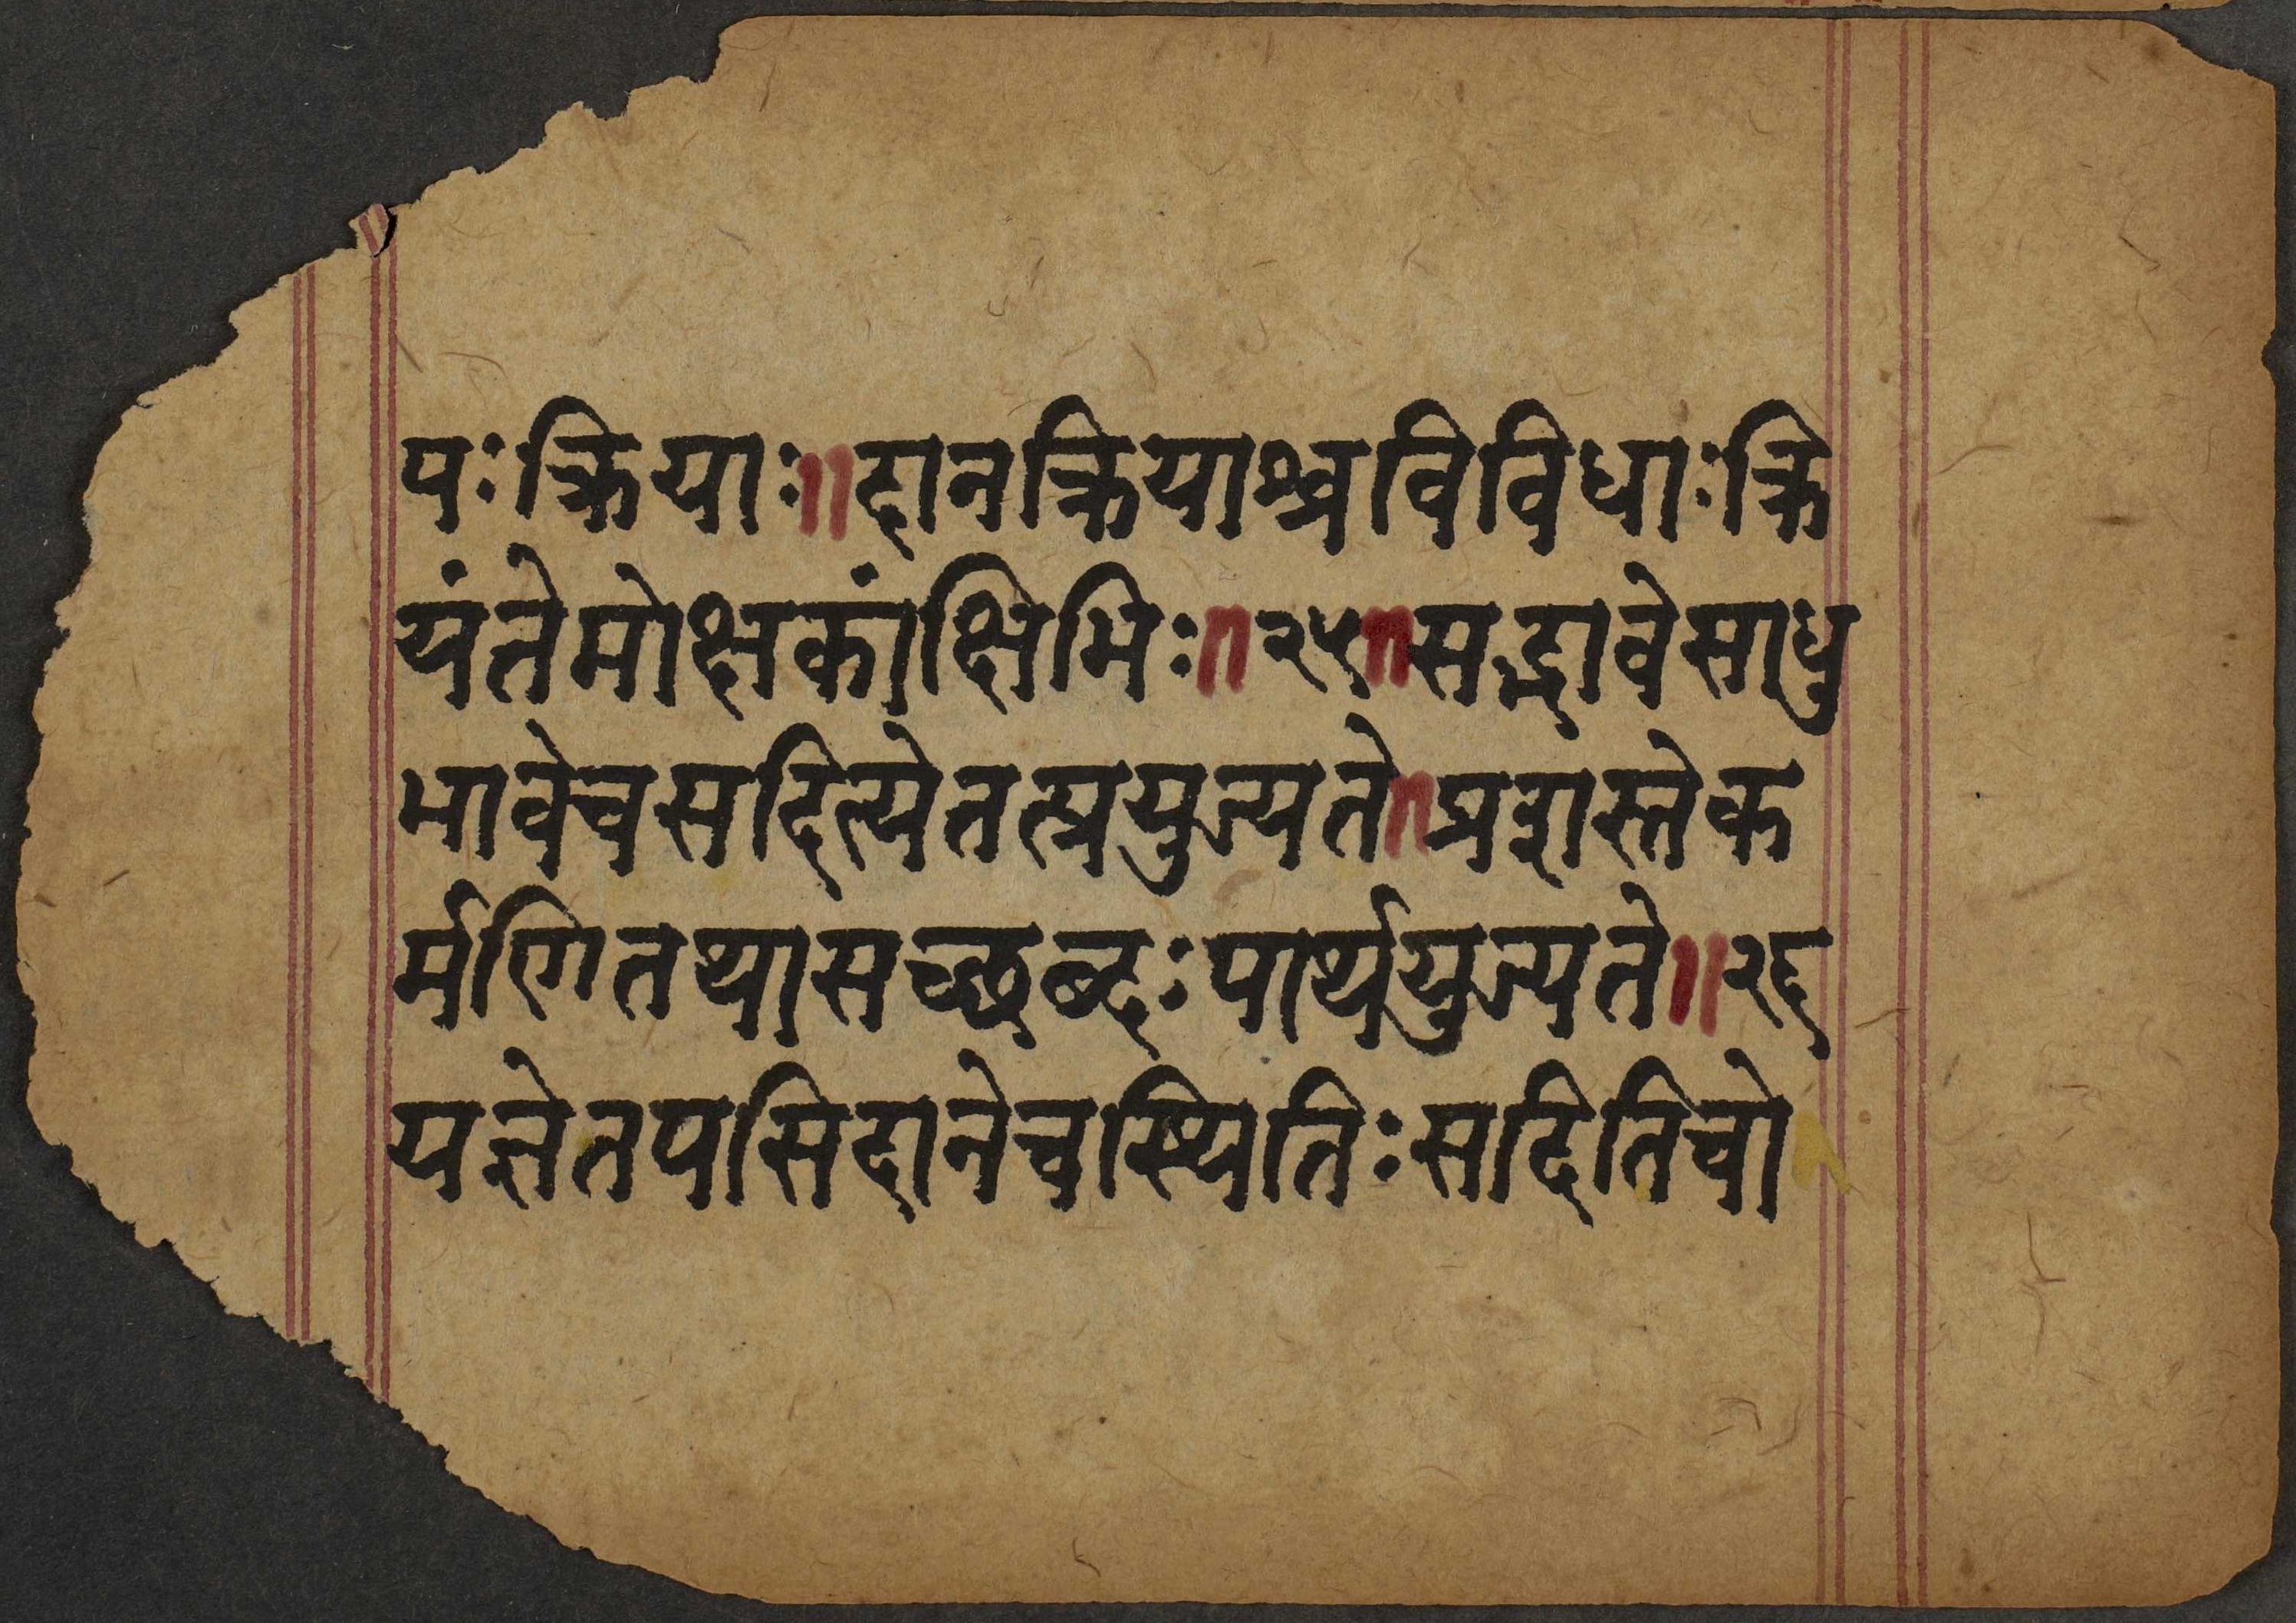 पःक्रियाः॥दानक्रियाश्चविविधाःक्रि
यंतेमोक्षकांक्षिभिः॥२५॥सद्भावेसाधु
भावेचसदित्येतत्प्रयुज्यते॥प्रशस्तेक
र्मणितथासच्छब्दःपार्थयुज्यते॥२६
यज्ञेतपसिदानेचस्थितिःसदितिचो